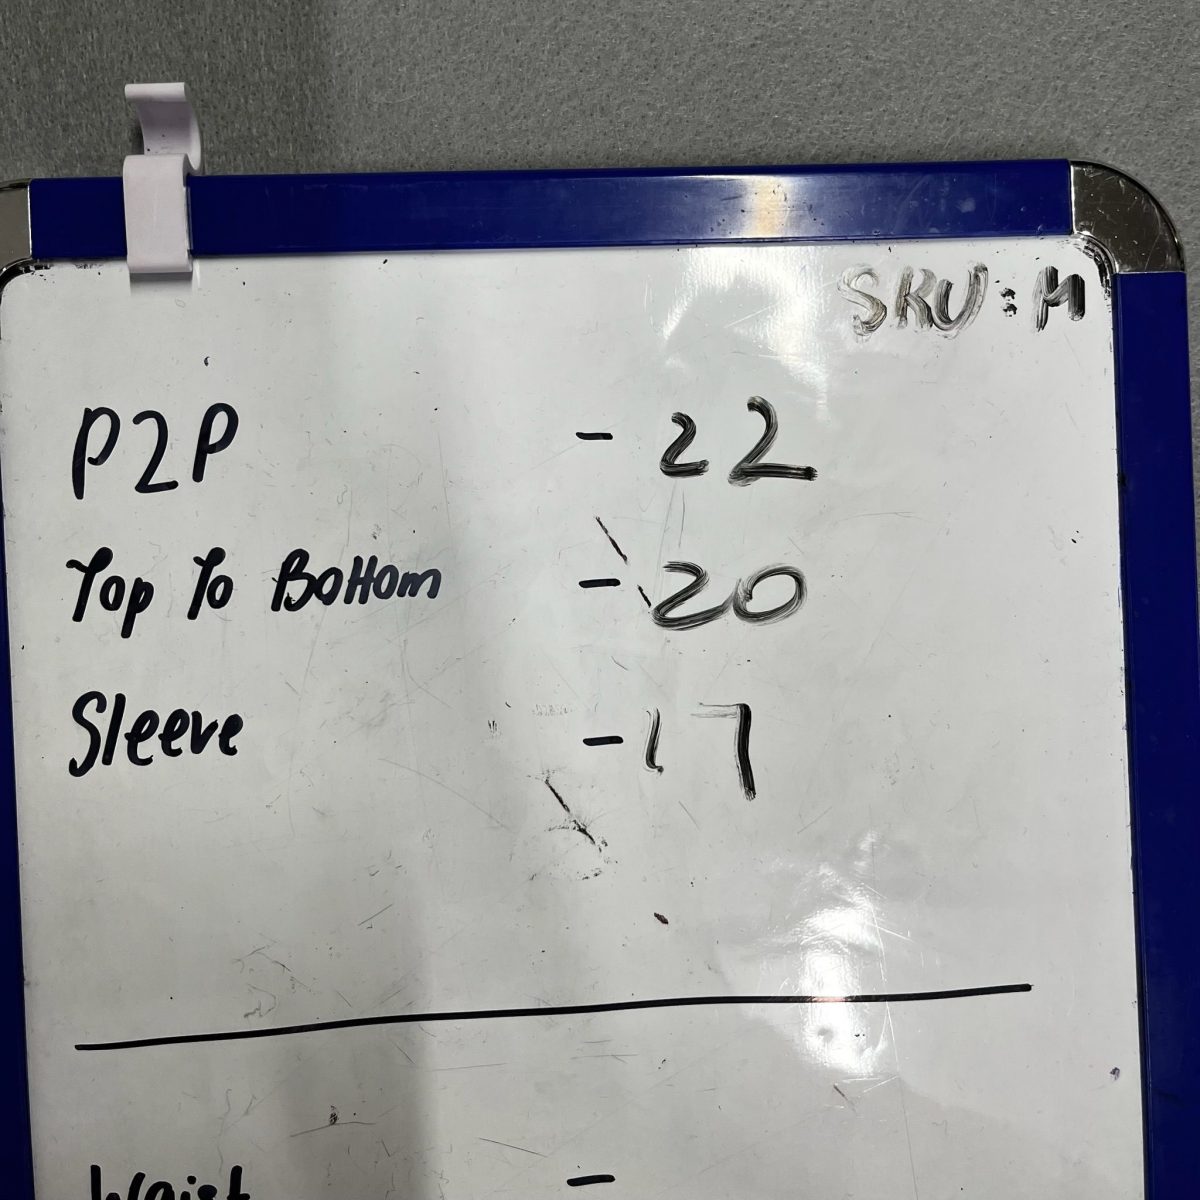 SKU: M
P2P - 22
Top To Bottom - 20
Sleeve - 17
Waist -